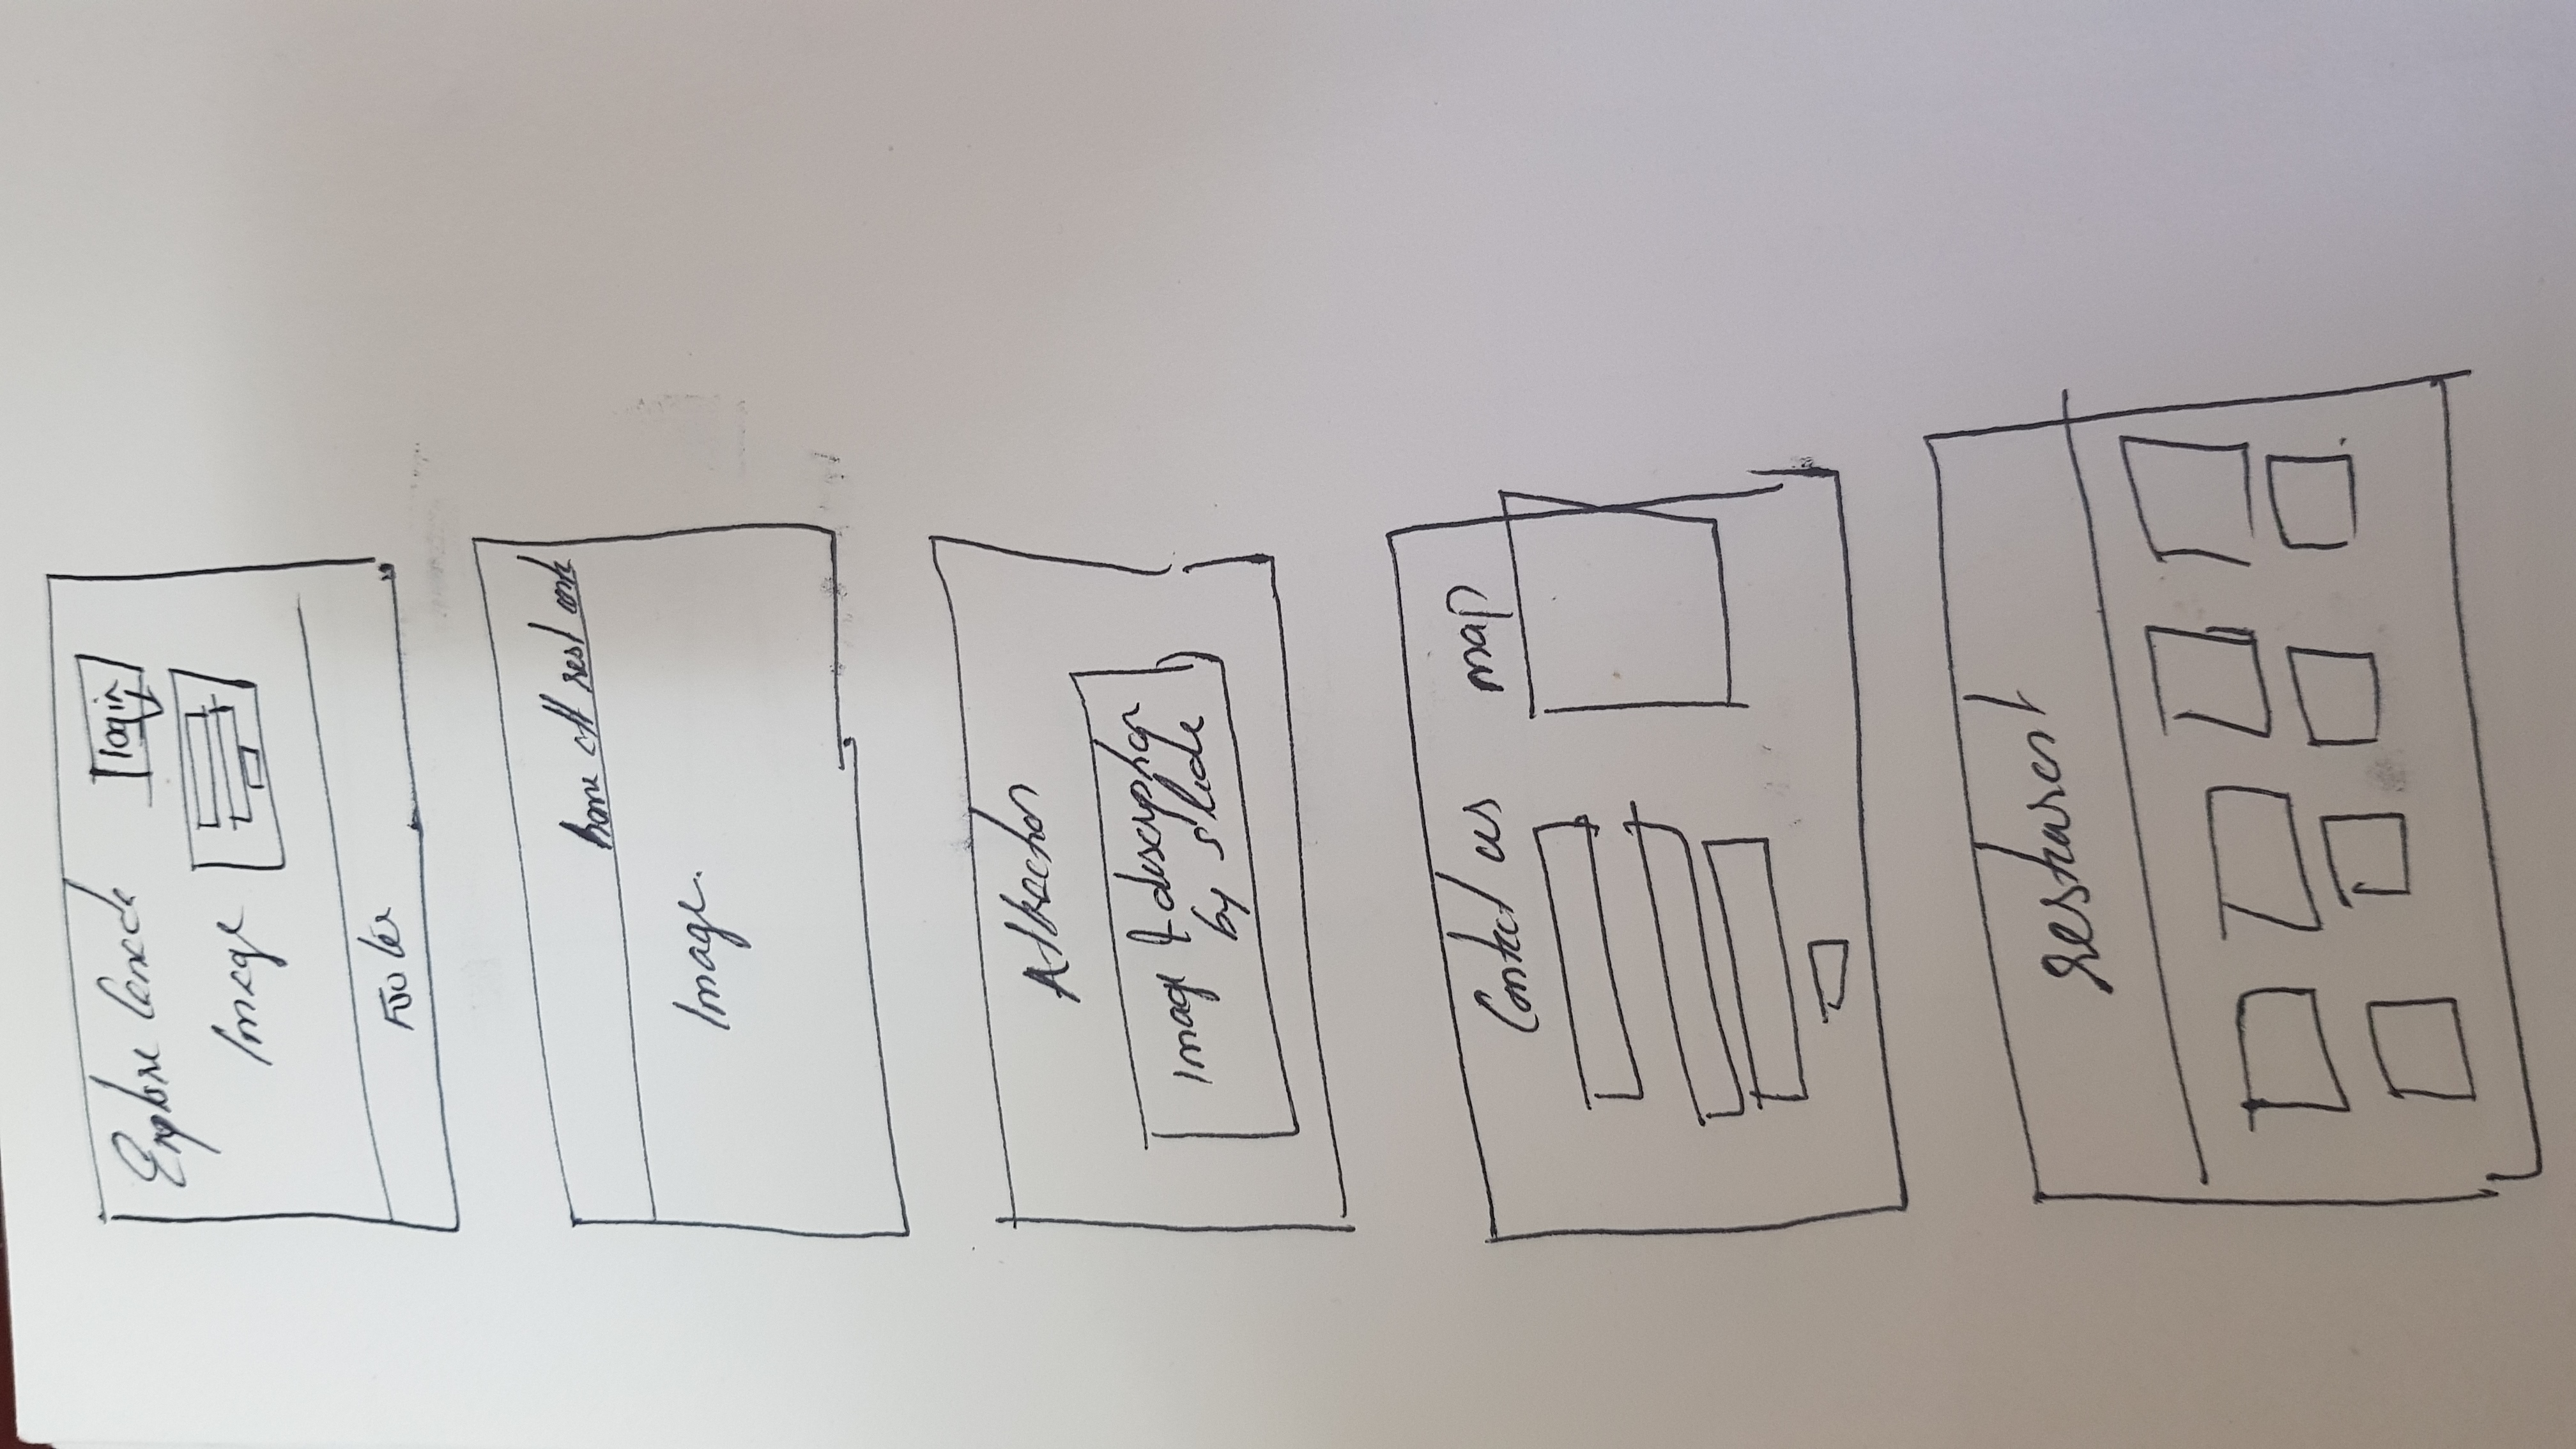 Explore Canada
login
Image
Footer
home att rest cont
Image.
Attraction
Image & description
by slide
Contact us
map
restaurant